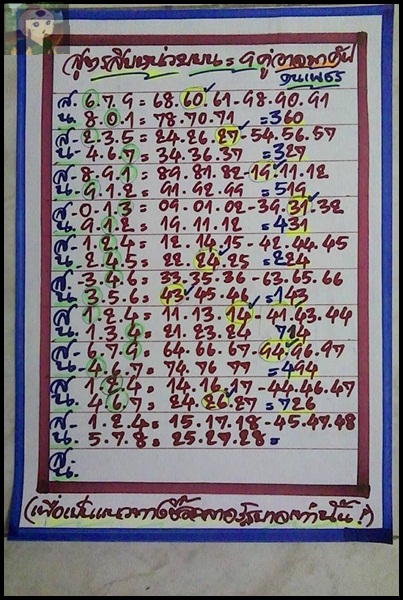 สูตรเสียบหน่วยบน = 9 คู่
คนเพชร
ส. 6.7.9 = 68.60.61-98.90.91
น. 8.0.1 = 78.70.71 = 360
ส.- 2.3.5 = 24.26.27-54.56.57
น. 4.6.7 = 34.36.37 = 327
ส.- 8.9.1 = 89.81.82-19.11.12
น.- 9.1.2 = 91.92.99 = 519
ส.- 0.1.3 = 09.01.02-39.31.32
น. 9.1.2 = 19.11.12 = 431
ส.- 1.2.4 = 12.14.15-42.44.45
น. 2.4.5 = 22.24.25 = 224
ส.- 3.4.6 = 33.35.36-63.65.66
น. 3.5.6 = 43.45.46 = 143
ส. 1.2.4 = 11.13.14-41.43.44
น. 1.3.4 = 21.23.24 714
ส.- 6.7.9 = 64.66.67-94.96.97
น. 4.6.7 = 74.76 77 = 494
ส.- 1.2.4 = 14.16.17-44.46.47
น. 4.6.7 = 24.26.27 = 726
ส.- 1.2.4 = 15.17.18-45.47.48
น. 5.7.8 = 25.27.28 =
ส.
น.
(เพื่อเป็นแนวทางซื้อสลากฯรัฐบาลเท่านั้น!)